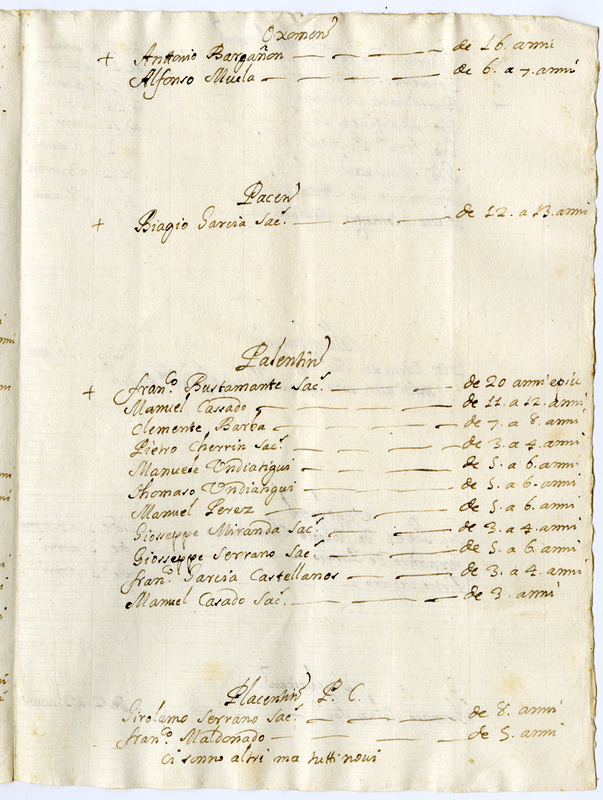 Oxomen
+ Anttonio Bargañon — — — de 16. anni
Alfonso Muela — — — — de 6. a 7. anni
Pacen
+ Biagio Garcia Sac. — — — — de 12. a 13. anni
Palentin
+ fran.co Bustamante Sac. — — — de 20 anni e piu
Manuel Cassado — — — — de 11. a 12. anni
Clemente Barba — — — — de 7. a 8. anni
Pietro Cherrin Sac. — — — — de 3. a 4. anni
Manuele Undiatigui — — — — de 5. a 6. anni
Thomaso Undiatigui — — — — de 5. a 6. anni
Manuel Perez — — — — de 5. a 6. anni
Gioseppe Miranda Sac. — — — de 3. a 4. anni
Giosseppe Serrano Sac. — — — de 5. a 6. anni
fran.co Garcia Castellanos — — — de 3. a 4. anni
Manuel Casado Sac. — — — — de 3. anni
Placentin P. C.
Girolamo Serrano Sac. — — — — de 8. anni
fran.co Maldonado — — — — de 5. anni
Ci sonno altri ma tutti novi